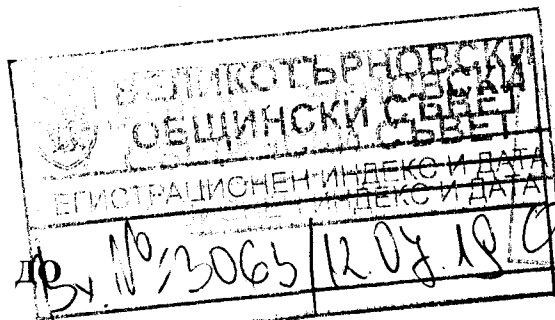 ВЕЛИКОТЪРНОВСКИ
ОБЩИНСКИ СЪВЕТ
РЕГИСТРАЦИОНЕН ИНДЕКС И ДАТА
ДО
Вх. № 3063 12.07.19